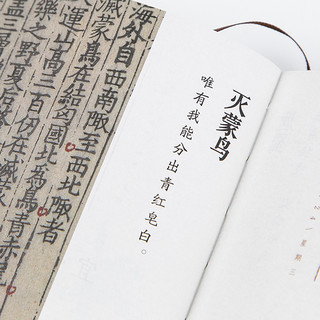 灭蒙鸟
唯有我能分出青红皂白。
海外自西南陬至西北陬者
滅蒙鳥在結匈國北為鳥青赤尾
大運山高三百仞在滅蒙
樂之野夏后
蓋三層
星期三